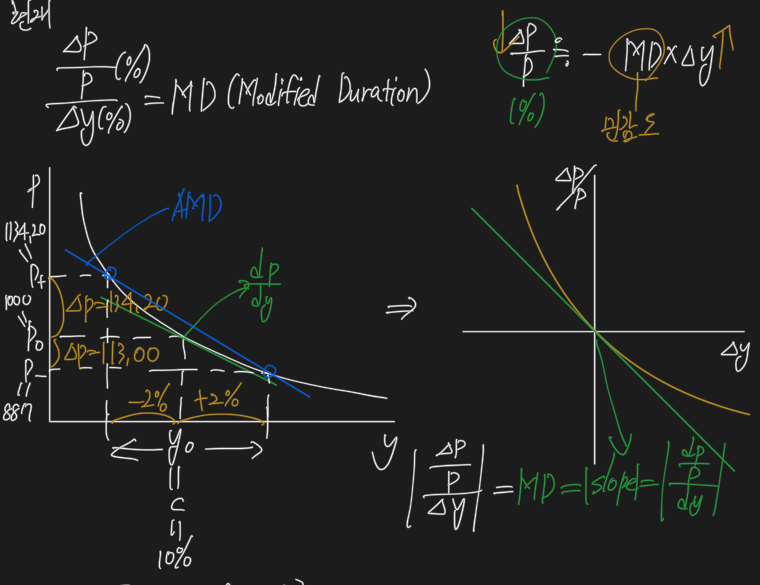 ΔP/P (%) / Δy(%) = MD (Modified Duration)
ΔP/P ≒ - MD×Δy↑
(%)
민감도
P
1134,20
P+
1000
P0
P-
887
ΔP=134,20
ΔP=113,00
AMD
dP/dy
-2% +2%
y0
y
c
10%
⇒
ΔP/P
Δy
|ΔP/P / Δy| = MD = |slope| = |dP/P / dy|